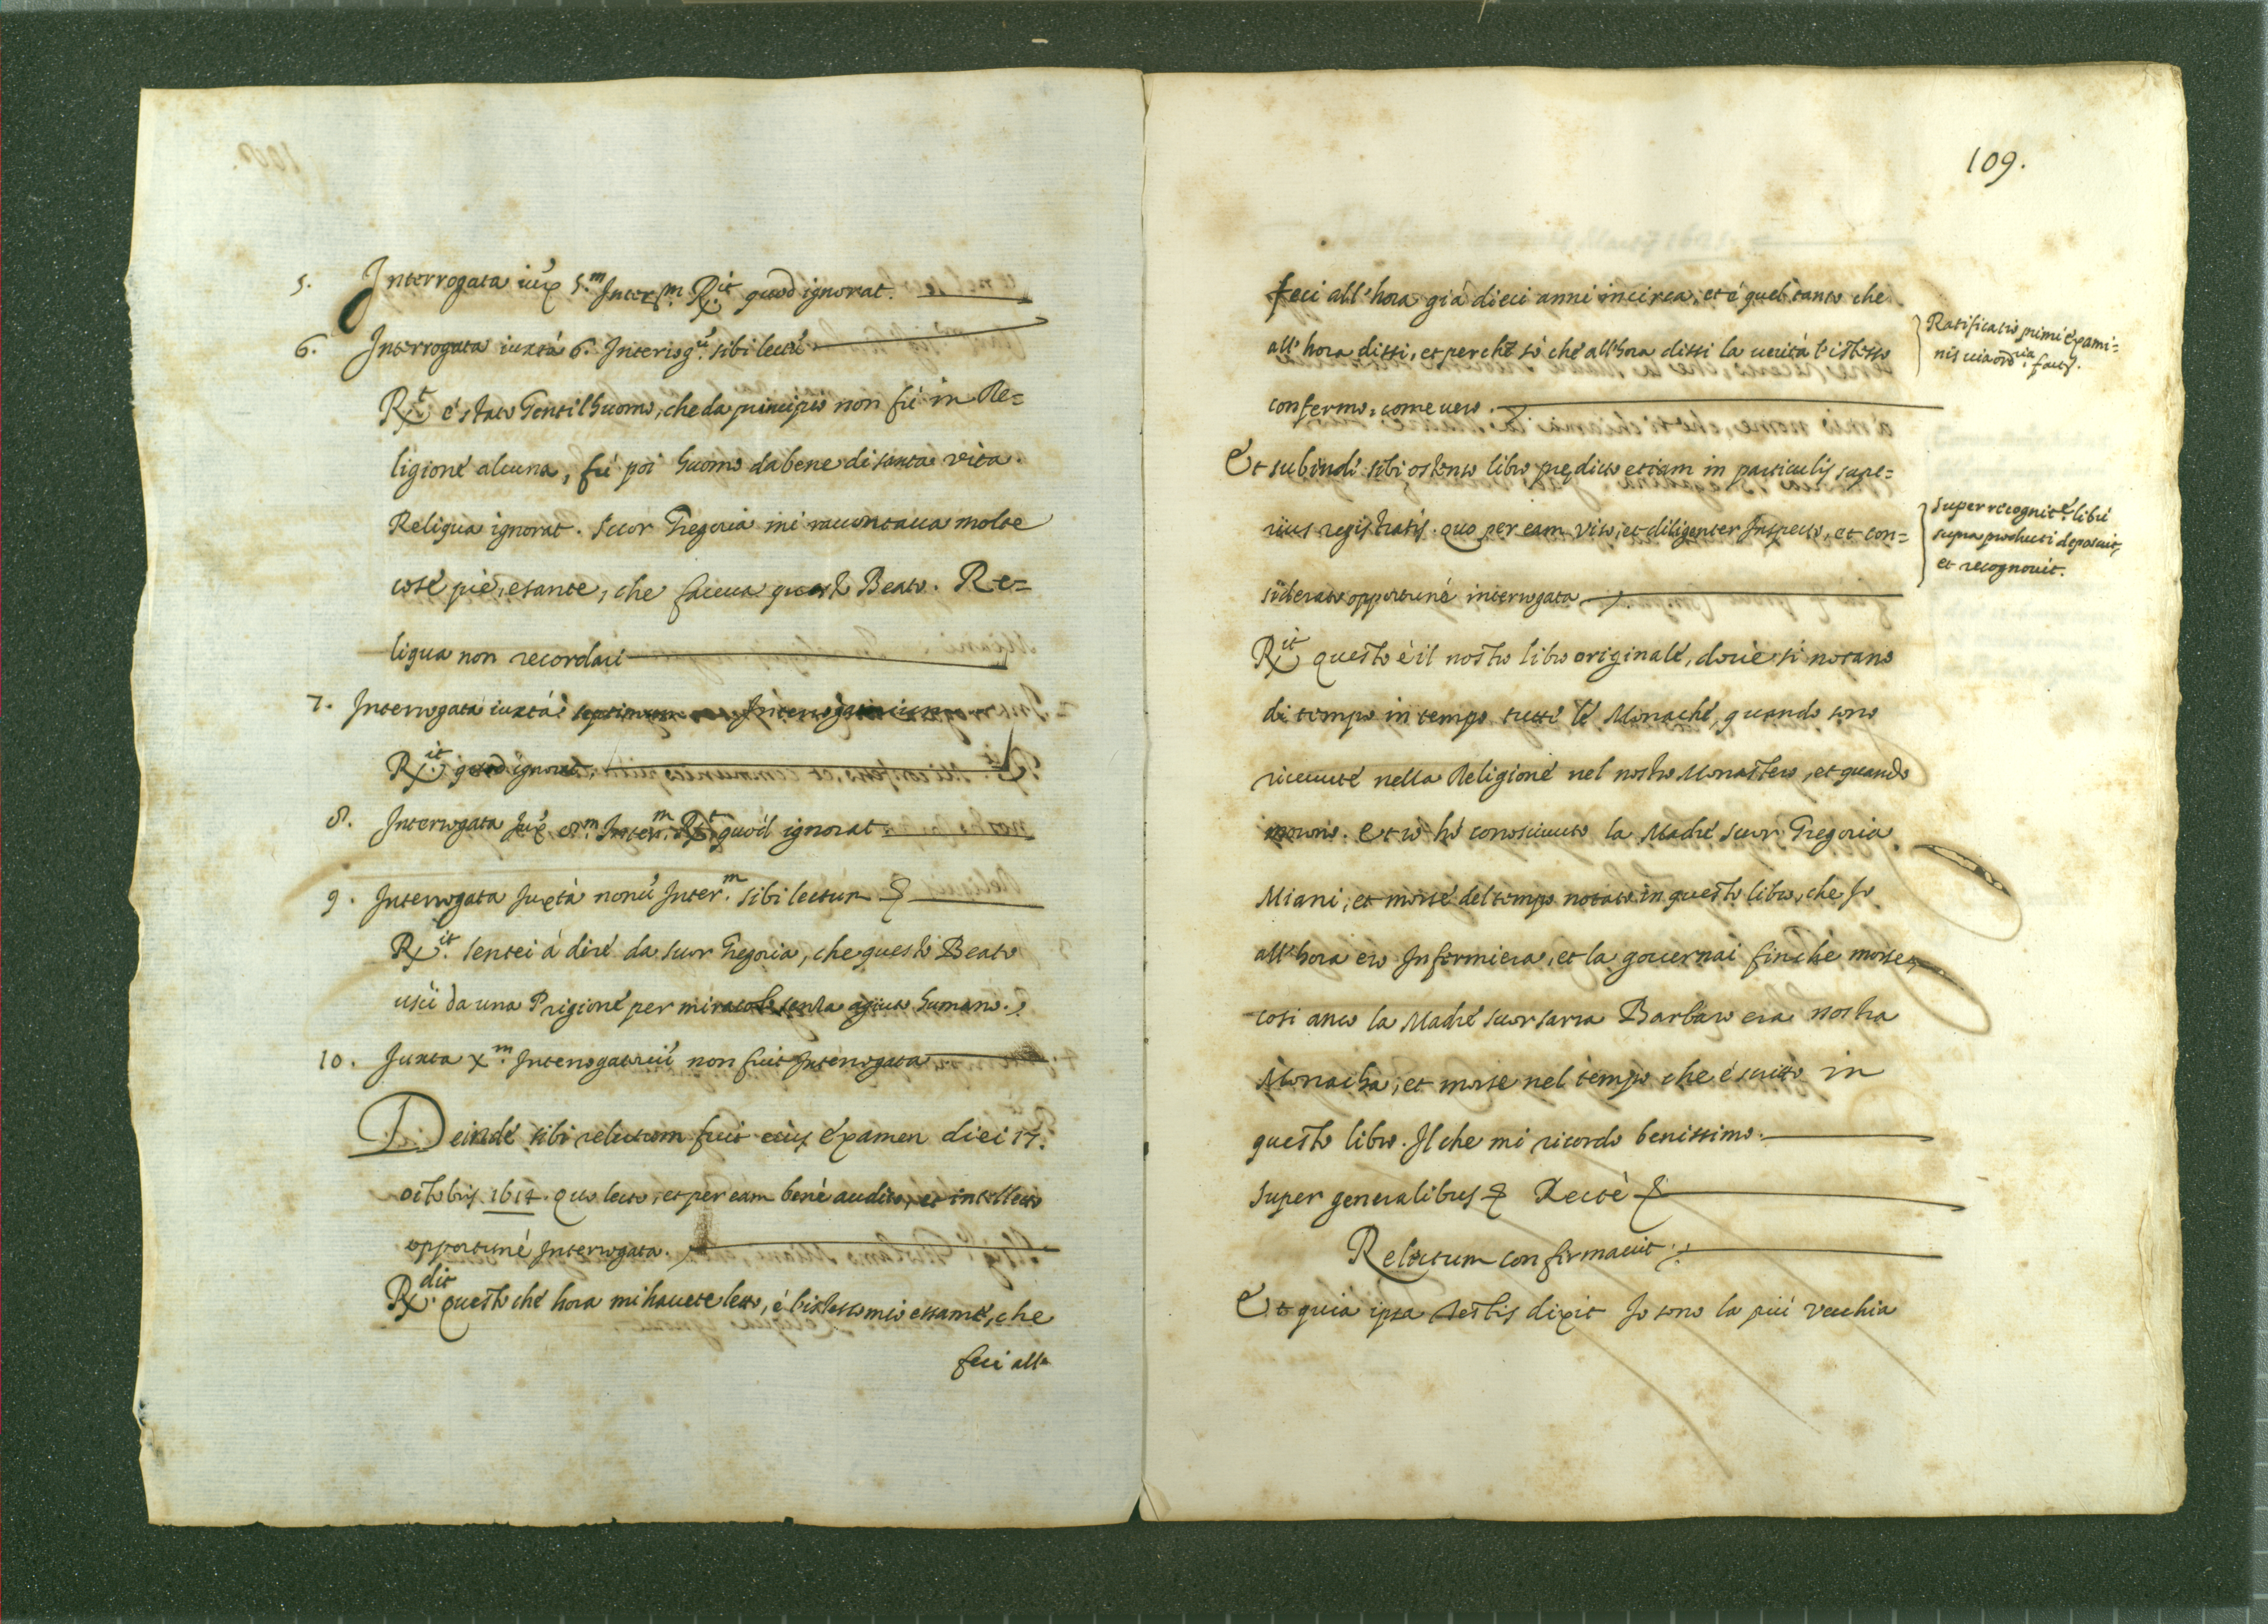 5. Interrogata iuxᵃ 5.ᵐ Interr.ᵐ Rx.ⁱᵗ quod ignorat.
6. Interrogata iuxtà 6. Interrogᵘ̃ sibi lectu̇̃
Rx.ᵗ è stato Gentilhuomo, che da principio non fù in Re=
ligione alcuna, fù poi huomo dabene di santa vita.
Reliqua ignorat. Suor Gregoria mi raccontaua molte
cose pie, e sante, che faceua questo Beato. Re=
liqua non recordari
7. Interrogata iuxtà septimum Interrogatorium
Rx.ⁱᵗ quod ignorat.
8. Interrogata Juxᵃ 8.ᵐ Interr.ᵐ Rx.ᵗ quòd ignorat
9. Interrogata Juxtà nonũ Inter.ᵐ sibi lectum &
Rx.ⁱᵗ Sentei à dire da suor Gregoria, che questo Beato
uscì da una Prigione per miracolo senza agiuto humano.
10. Juxta x.ᵐ Interrogatoriũ non fuit Interrogata
Deinde sibi relectum fuit eius examen diei 17.
octobris 1614. Quo lecto, et per eam bene audito, et intellecto
opportunè Interrogata.
Rx.ᵈⁱᵗ Questo che hora mi hauete letto, è l'istesso mio essame, che
feci all'
109.
feci all'hora già dieci anni incirca, et è quel tanto che
all'hora dissi, et perche sò che all'hora dissi la uerità l'istesso
confermo, come uero.
Ratificatio primi exami=
nis uia ordʳⁱᵃ facᵗ.
Et subinde sibi ostenso libro predicto etiam in particulis supe=
rius registratis. Quo per eam viso, et diligenter Inspecto, et con=
siderato opportunè interrogata
super recognitᵉ libri
supra producti deposuit,
et recognouit.
Rx.ⁱᵗ Questo è il nostro libro originale, doue si notano
di tempo in tempo tutte le Monache, quando sono
riceuute nella Religione nel nostro Monastero, et quando
morono. et io hò conosciuuto la Madre suor Gregoria
Miani, et morse del tempo notato in questo libro, che Io
all'hora ero Infermiera, et la gouernai finche morse,
cosi anco la Madre suor Barbaro era nostra
Monacha, et morse nel tempo che è scritto in
questo libro. Il che mi ricordo benissimo.
Super generalibus & Rectè &
Relectum confirmauit.
Et quia ipsa Testis dixit Io sono la più vecchia